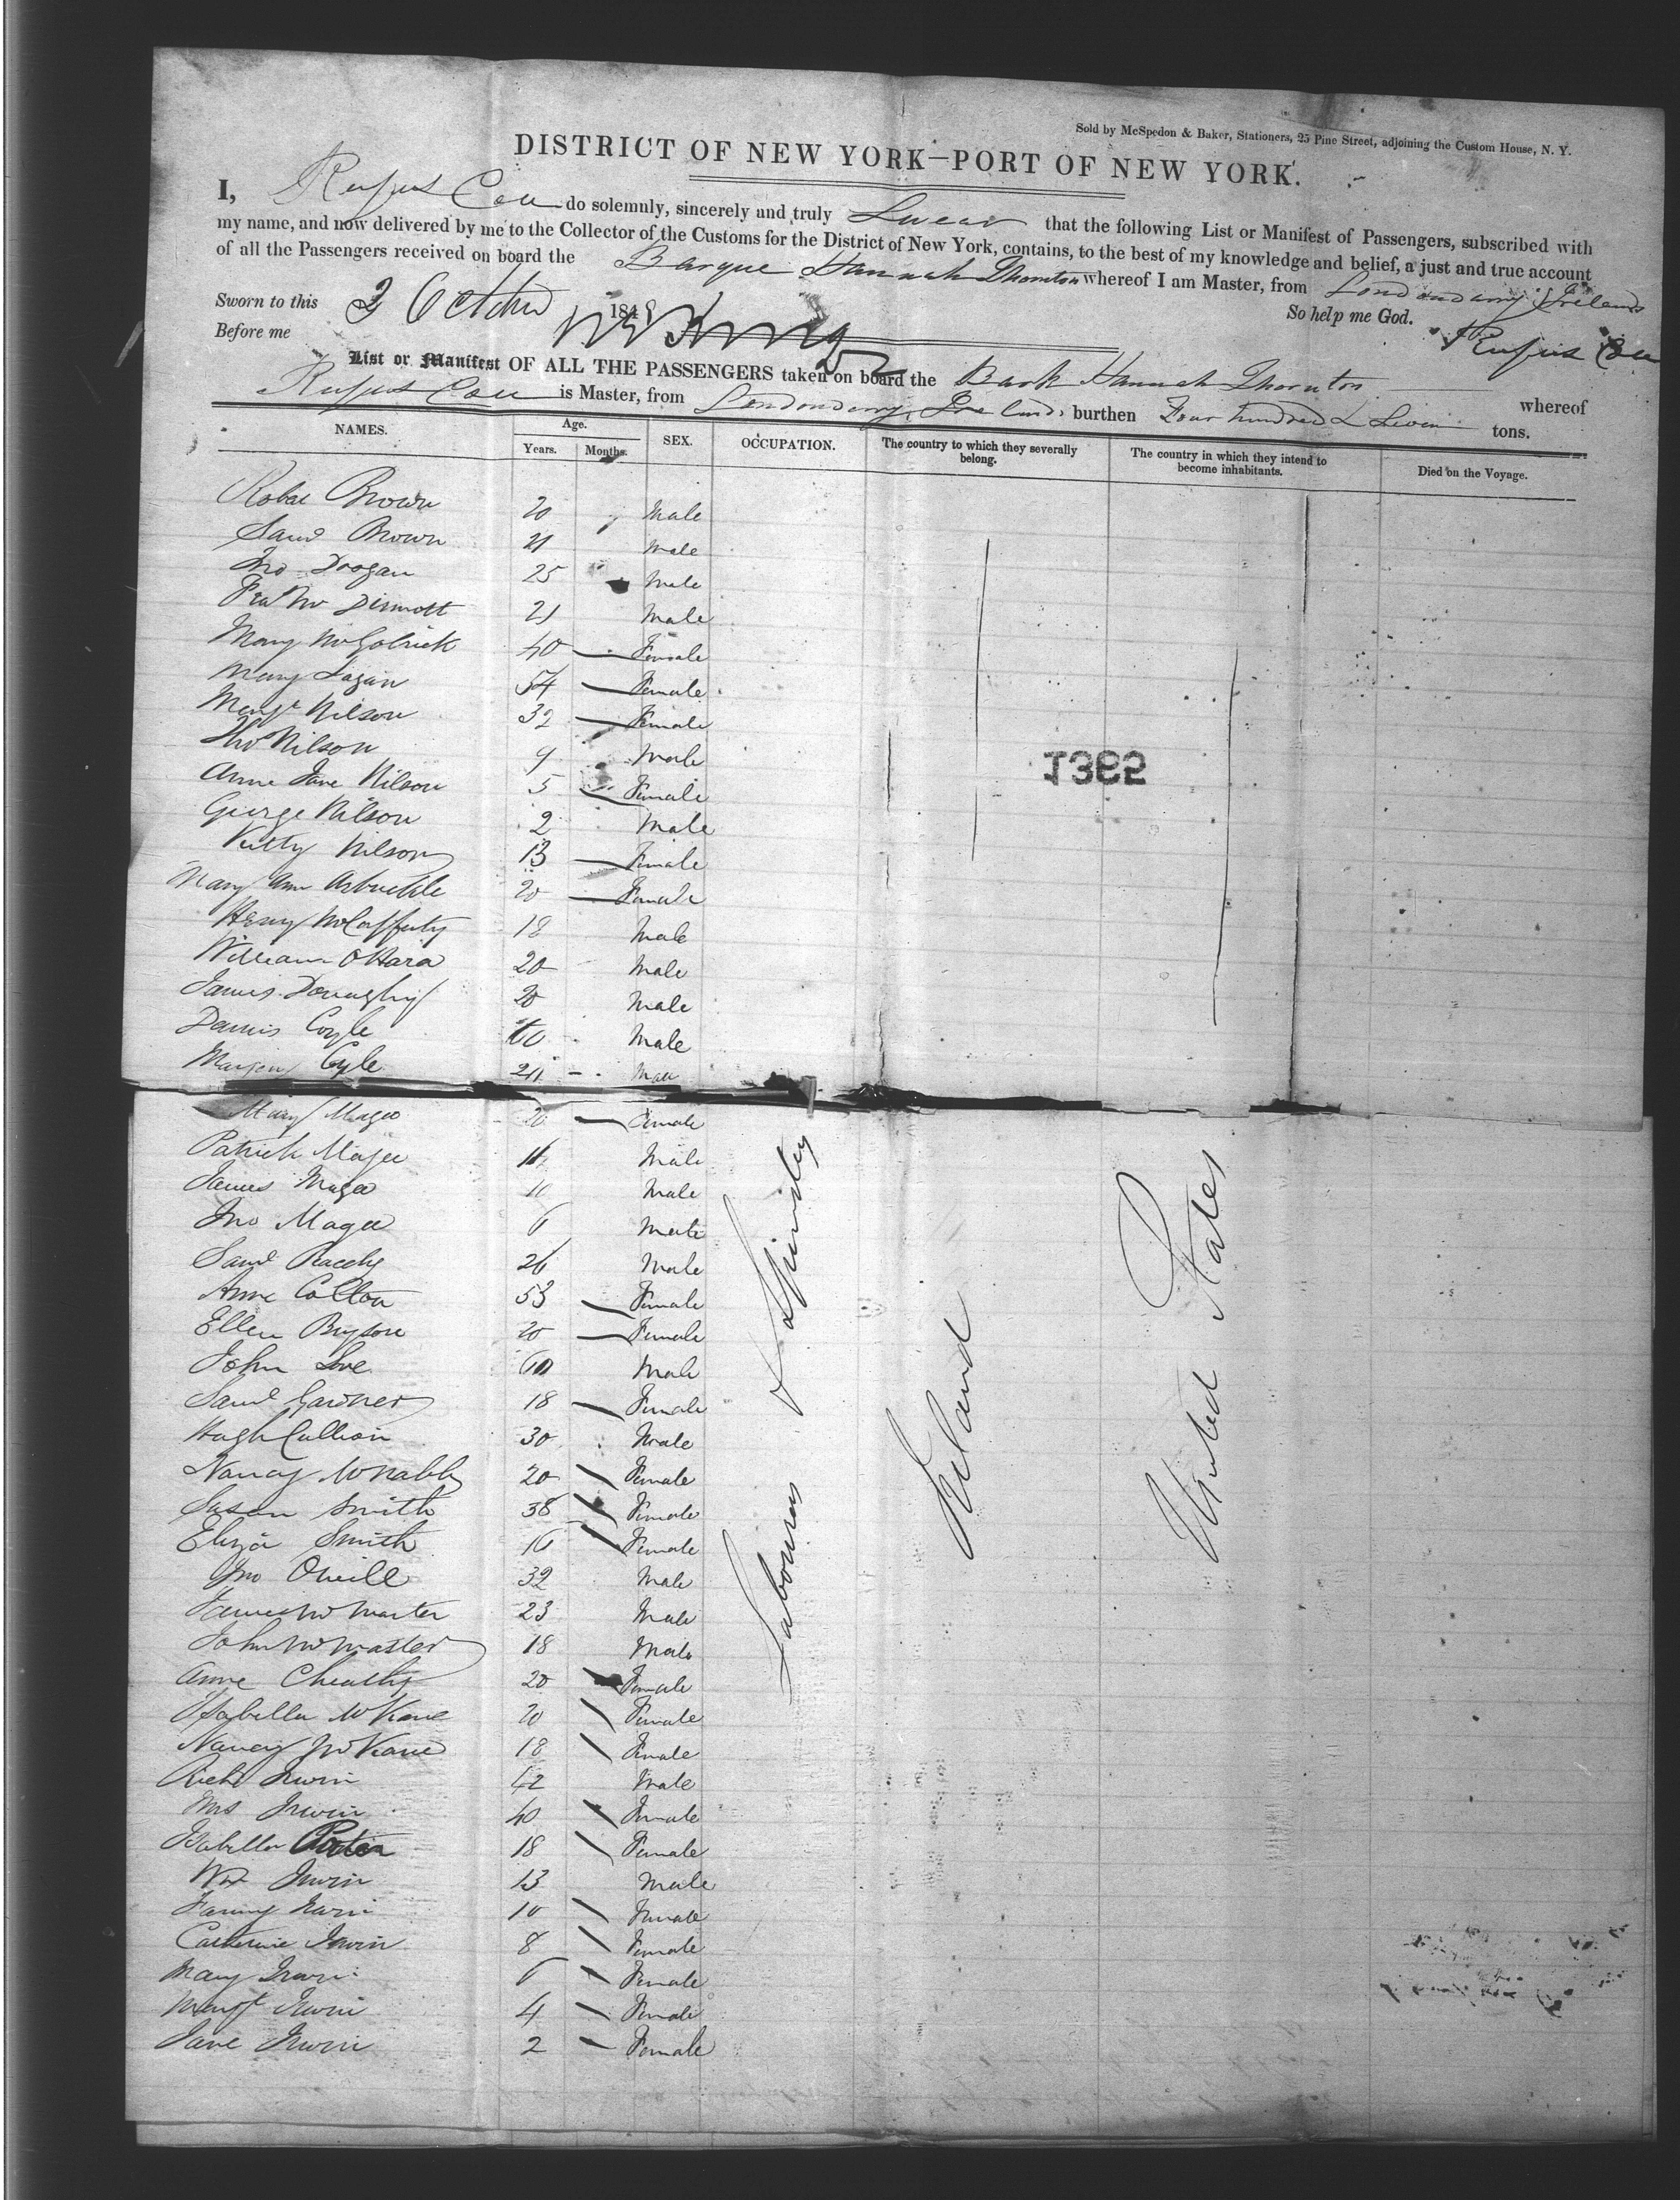 Sold by McSpedon & Baker, Stationers, 25 Pine Street, adjoining the Custom House, N. Y.
DISTRICT OF NEW YORK—PORT OF NEW YORK.
I, Rufus Coe do solemnly, sincerely and truly Swear that the following List or Manifest of Passengers, subscribed with
my name, and now delivered by me to the Collector of the Customs for the District of New York, contains, to the best of my knowledge and belief, a just and true account
of all the Passengers received on board the Barque Hannah Thornton whereof I am Master, from Londonderry Ireland
Sworn to this 2 October 1848 So help me God.
Before me Rufus Coe
List or Manifest OF ALL THE PASSENGERS taken on board the Bark Hannah Thornton whereof
Rufus Coe is Master, from Londonderry, Ireland, burthen Four hundred & Seven tons.
NAMES. Age. Years. Months. SEX. OCCUPATION. The country to which they severally belong. The country in which they intend to become inhabitants. Died on the Voyage.
Brown 20 Male
Saml Brown 21 Male
Jno Doogan 25 Male
Mc Dermott 21 Male
Mary McGolrick 40 Female
Mary Fagan 54 Female
Margt Nilson 32 Female
Nilson 9 Male
Anne Jane Nilson 5 Female
George Nilson 2 Male
Kitty Nilson 13 Female
Mary Ann Arbuckle 20 Female
Henry McCafferty 18 Male
William OHara 20 Male
James Donaghy 20 Male
Coyle 60 Male
Coyle Male
1382
Mary Magee 20 Female
Patrick Magee Male
James Magee 10 Male
Jno Magee 6 Male
Saml 26 Male
Anne Colton 53 Female
Ellen Bryson 20 Female
John Love Male
Saml Gardner 18 Female
Hugh Cullion 30 Male
Nancy McNabb 20 Female
Susan Smith 38 Female
Eliza Smith 16 Female
Jno Oneill 32 Male
James McMaster 23 Male
John McMaster 18 Male
Anne 20 Female
Isabella McKane 20 Female
Nancy McKane 18 Female
Richd Irwin 42 Male
Mrs Irwin 40 Female
Isabella Porter 18 Female
Wm Irwin 13 Male
Fanny Irwin 10 Female
Catherine Irwin 8 Female
Mary Irwin 6 Female
Margt Irwin 4 Female
Jane Irwin 2 Female
Labourers & Spinsters
Ireland
United States